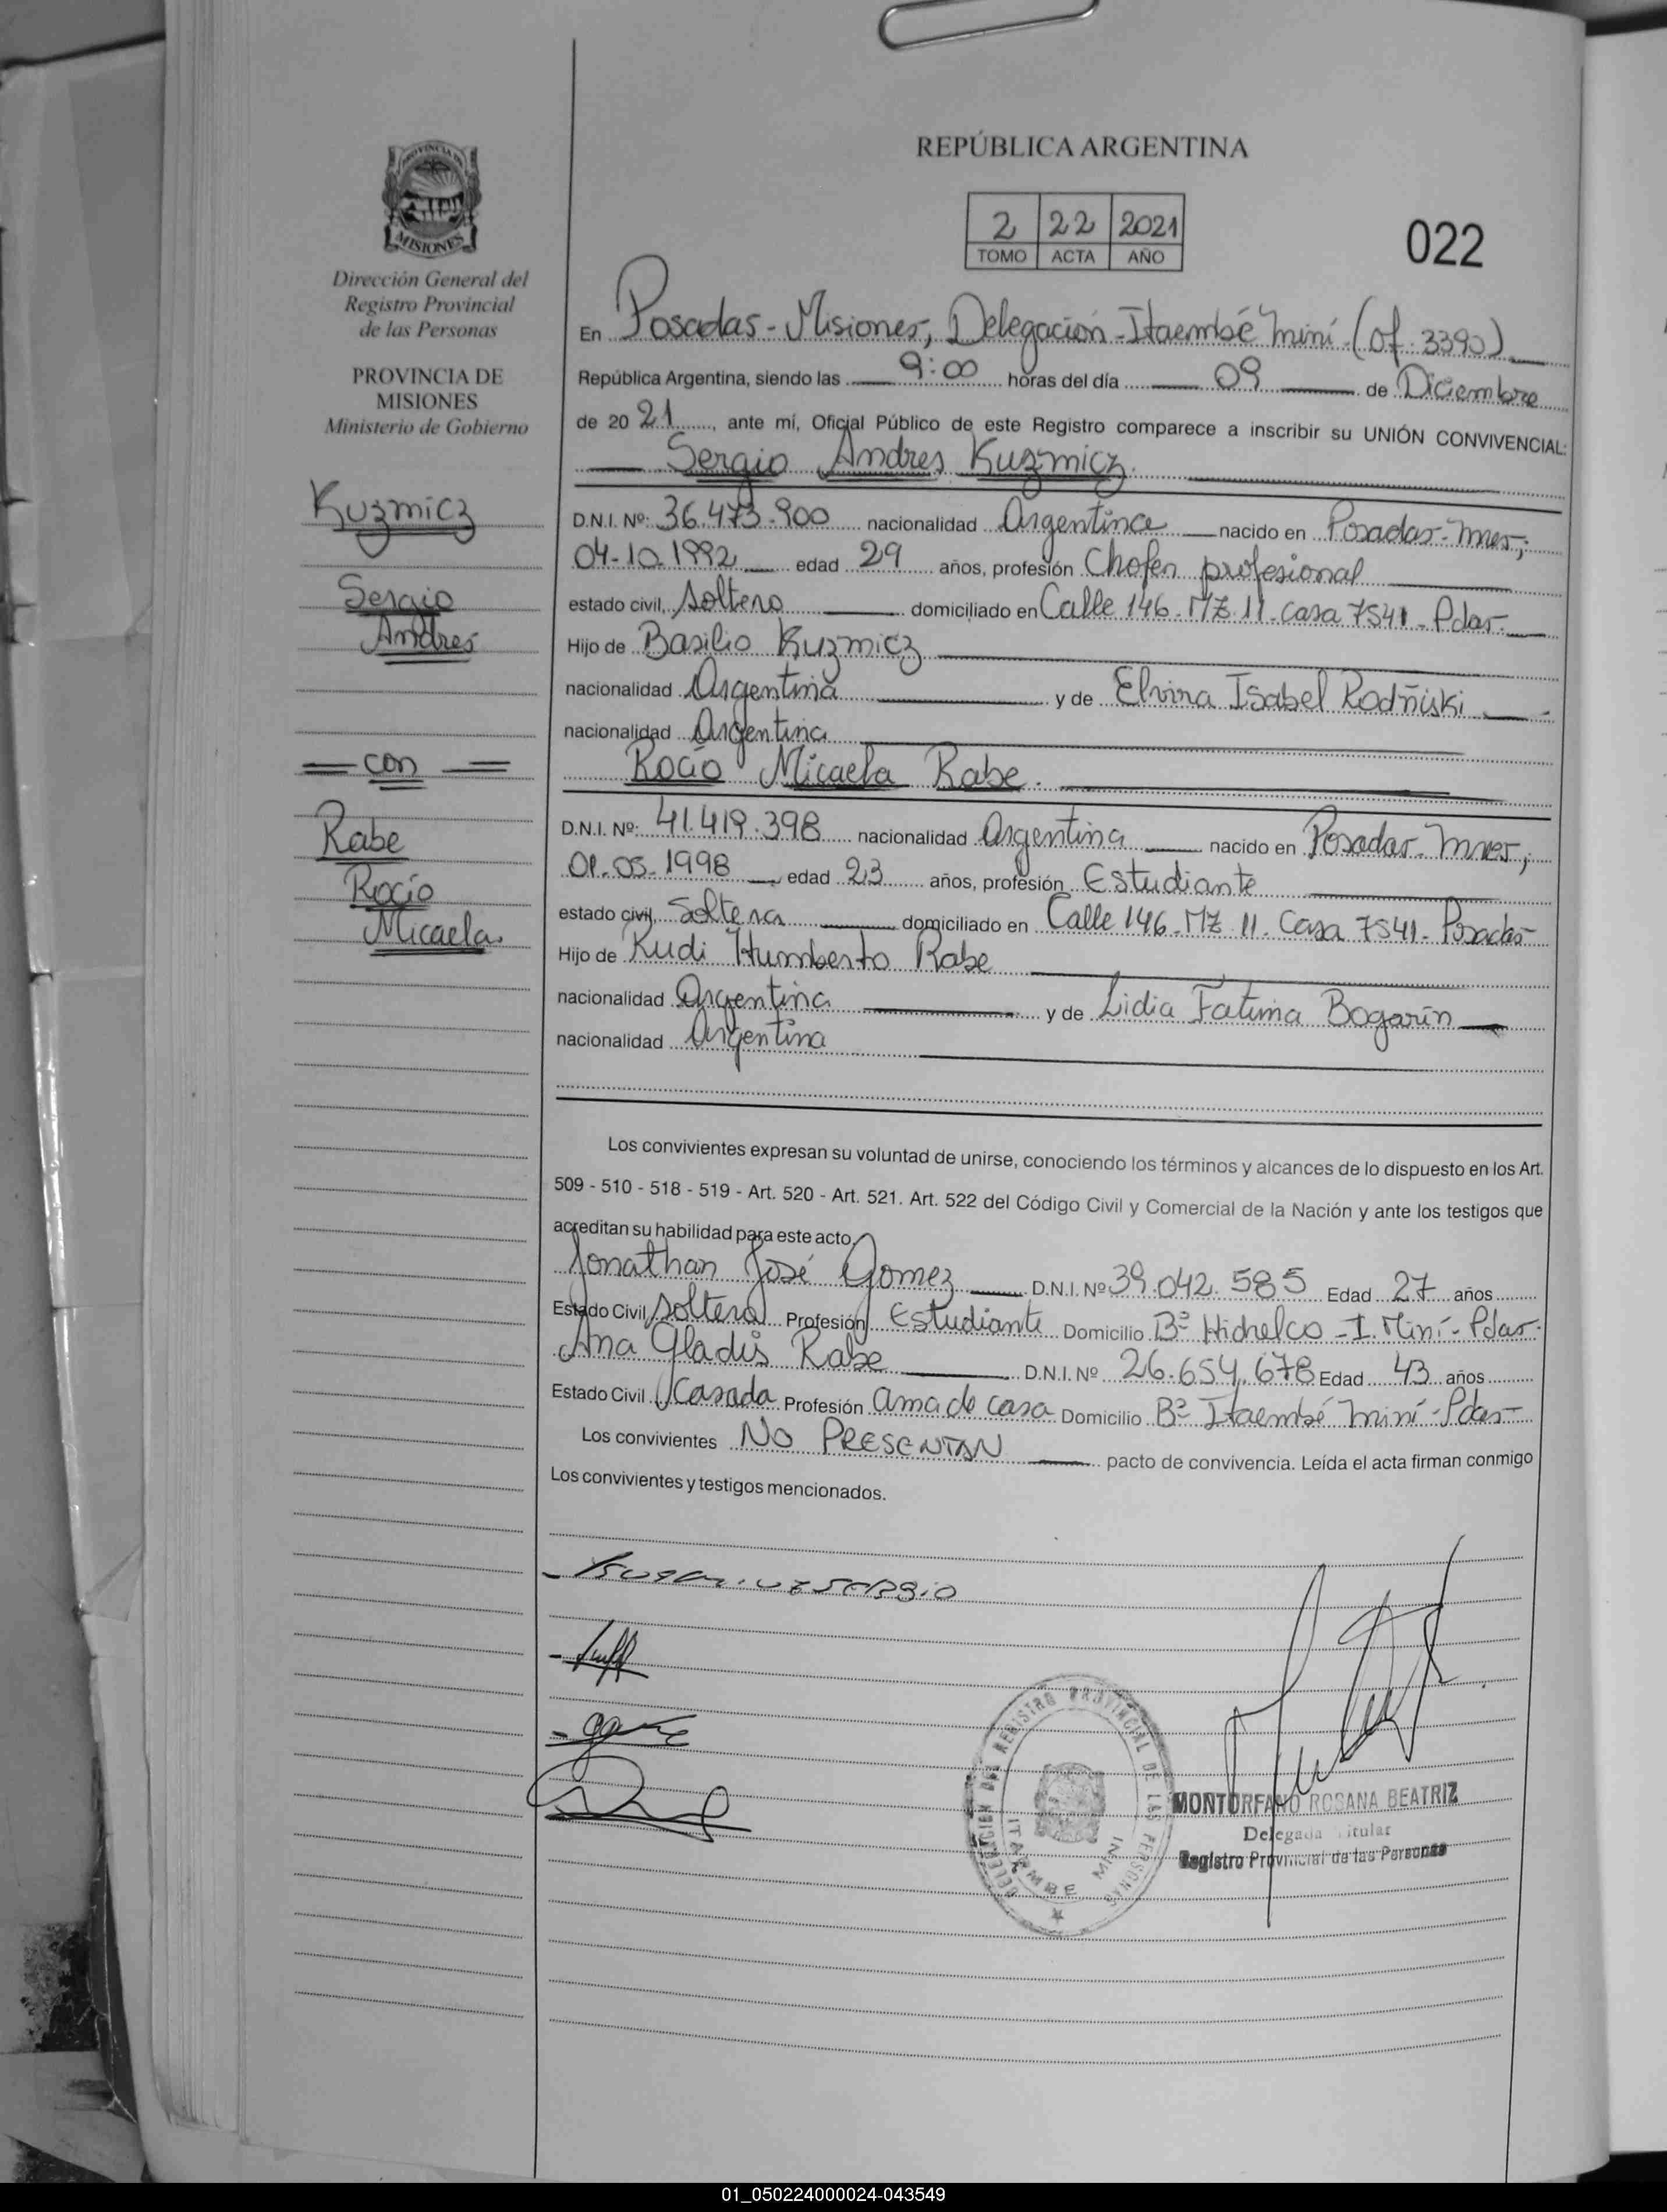 REPÚBLICA ARGENTINA
2 22 2021
TOMO ACTA AÑO
022
PROVINCIA DE
MISIONES
Dirección General del
Registro Provincial
de las Personas
PROVINCIA DE
MISIONES
Ministerio de Gobierno
Kuzmicz
Sergio
Andres
con
Rabe
Rocío
Micaela
En Posadas - Misiones, Delegación - Itaembé Miní - (Of. 3390)
República Argentina, siendo las 9:00 horas del día 09 de Diciembre
de 2021, ante mí, Oficial Público de este Registro comparece a inscribir su UNIÓN CONVIVENCIAL:
Sergio Andres Kuzmicz.
D.N.I. Nº: 36.473.900 nacionalidad Argentina nacido en Posadas - Mnes;
04-10-1992 edad 29 años, profesión Chofer profesional
estado civil, soltero domiciliado en Calle 146. MZ 11. casa 7541 - Pdas.
Hijo de Basilio Kuzmicz
nacionalidad Argentina y de Elvira Isabel Rodñiski
nacionalidad Argentina
Rocío Micaela Rabe.
D.N.I. Nº: 41.419.398 nacionalidad Argentina nacido en Posadas - Mnes;
01.05.1998 edad 23 años, profesión Estudiante
estado civil, Soltera domiciliado en Calle 146. MZ 11. Casa 7541 - Posadas
Hijo de Rudi Humberto Rabe
nacionalidad Argentina y de Lidia Fatima Bogarín
nacionalidad Argentina
Los convivientes expresan su voluntad de unirse, conociendo los términos y alcances de lo dispuesto en los Art.
509 - 510 - 518 - 519 - Art. 520 - Art. 521. Art. 522 del Código Civil y Comercial de la Nación y ante los testigos que
acreditan su habilidad para este acto.
Jonathan José Gomez D.N.I. Nº 39.042.585 Edad 27 años
Estado Civil soltero Profesión Estudiante Domicilio Bº Hidrelco - I. Miní - Pdas.
Ana Gladis Rabe D.N.I. Nº 26.654.678 Edad 43 años
Estado Civil Casada Profesión ama de casa Domicilio Bº Itaembé Miní - Pdas
Los convivientes NO PRESENTAN pacto de convivencia. Leída el acta firman conmigo
Los convivientes y testigos mencionados.
DELEGACION DEL REGISTRO PROVINCIAL DE LAS PERSONAS
ITAEMBE MINI
MONTORFANO ROSANA BEATRIZ
Delegada Titular
Registro Provincial de las Personas
01_050224000024-043549